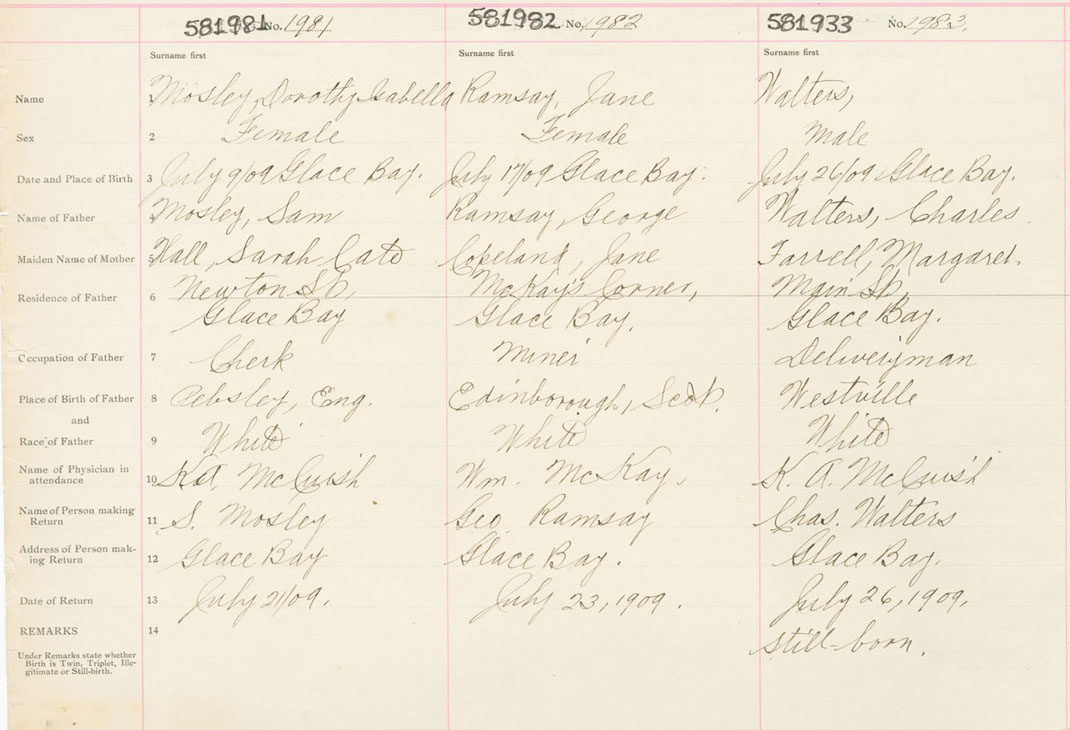 581981 No. 1981 581982 No. 1982 581933 No. 1983
Surname first Surname first Surname first
Name 1 Mosley, Dorothy Isabella Ramsay, Jane Walters,
Sex 2 Female Female Male
Date and Place of Birth 3 July 9/09 Glace Bay. July 17/09 Glace Bay. July 26/09 Glace Bay.
Name of Father 4 Mosley, Sam Ramsay, George Walters, Charles
Maiden Name of Mother 5 Hall, Sarah Cate Copeland, Jane Farrell, Margaret.
Residence of Father 6 Newton St., McKay's Corner, Main St.,
Glace Bay Glace Bay. Glace Bay.
Occupation of Father 7 Cherk Miner Deliveryman
Place of Birth of Father 8 Eng. Edinborough, Scot. Westville
and
Race of Father 9 White White White
Name of Physician in
attendance 10 K.A. McCuish Wm. McKay. K. A. McCuish
Name of Person making
Return 11 S. Mosley Geo. Ramsay Chas. Walters
Address of Person mak-
ing Return 12 Glace Bay Glace Bay. Glace Bay.
Date of Return 13 July 21/09. July 23, 1909. July 26, 1909.
REMARKS 14 still-born.
Under Remarks state whether
Birth is Twin, Triplet, Ille-
gitimate or Still-birth.